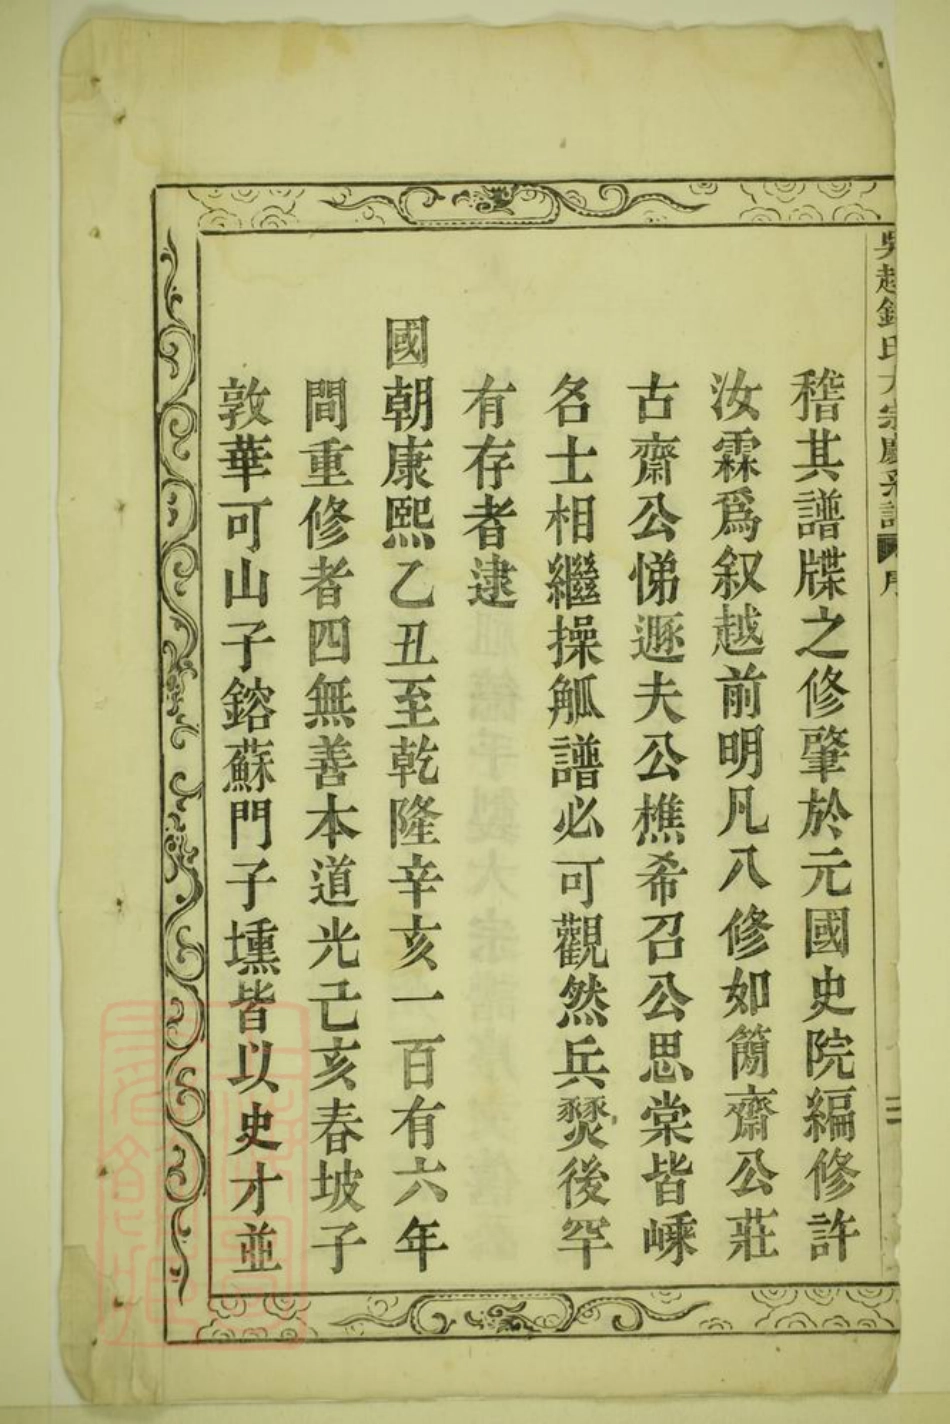 吳越錢氏大宗慶系譜 序 三
稽其譜牒之修肇於元國史院編修許
汝霖爲叙越前明凡八修如簡齋公莊
古齋公悌遯夫公樵希召公思棠皆嵊
名士相繼操觚譜必可觀然兵燹後罕
有存者逮
國朝康熙乙丑至乾隆辛亥一百有六年
間重修者四無善本道光己亥春坡子
敦華可山子鎔蘇門子壎皆以史才並